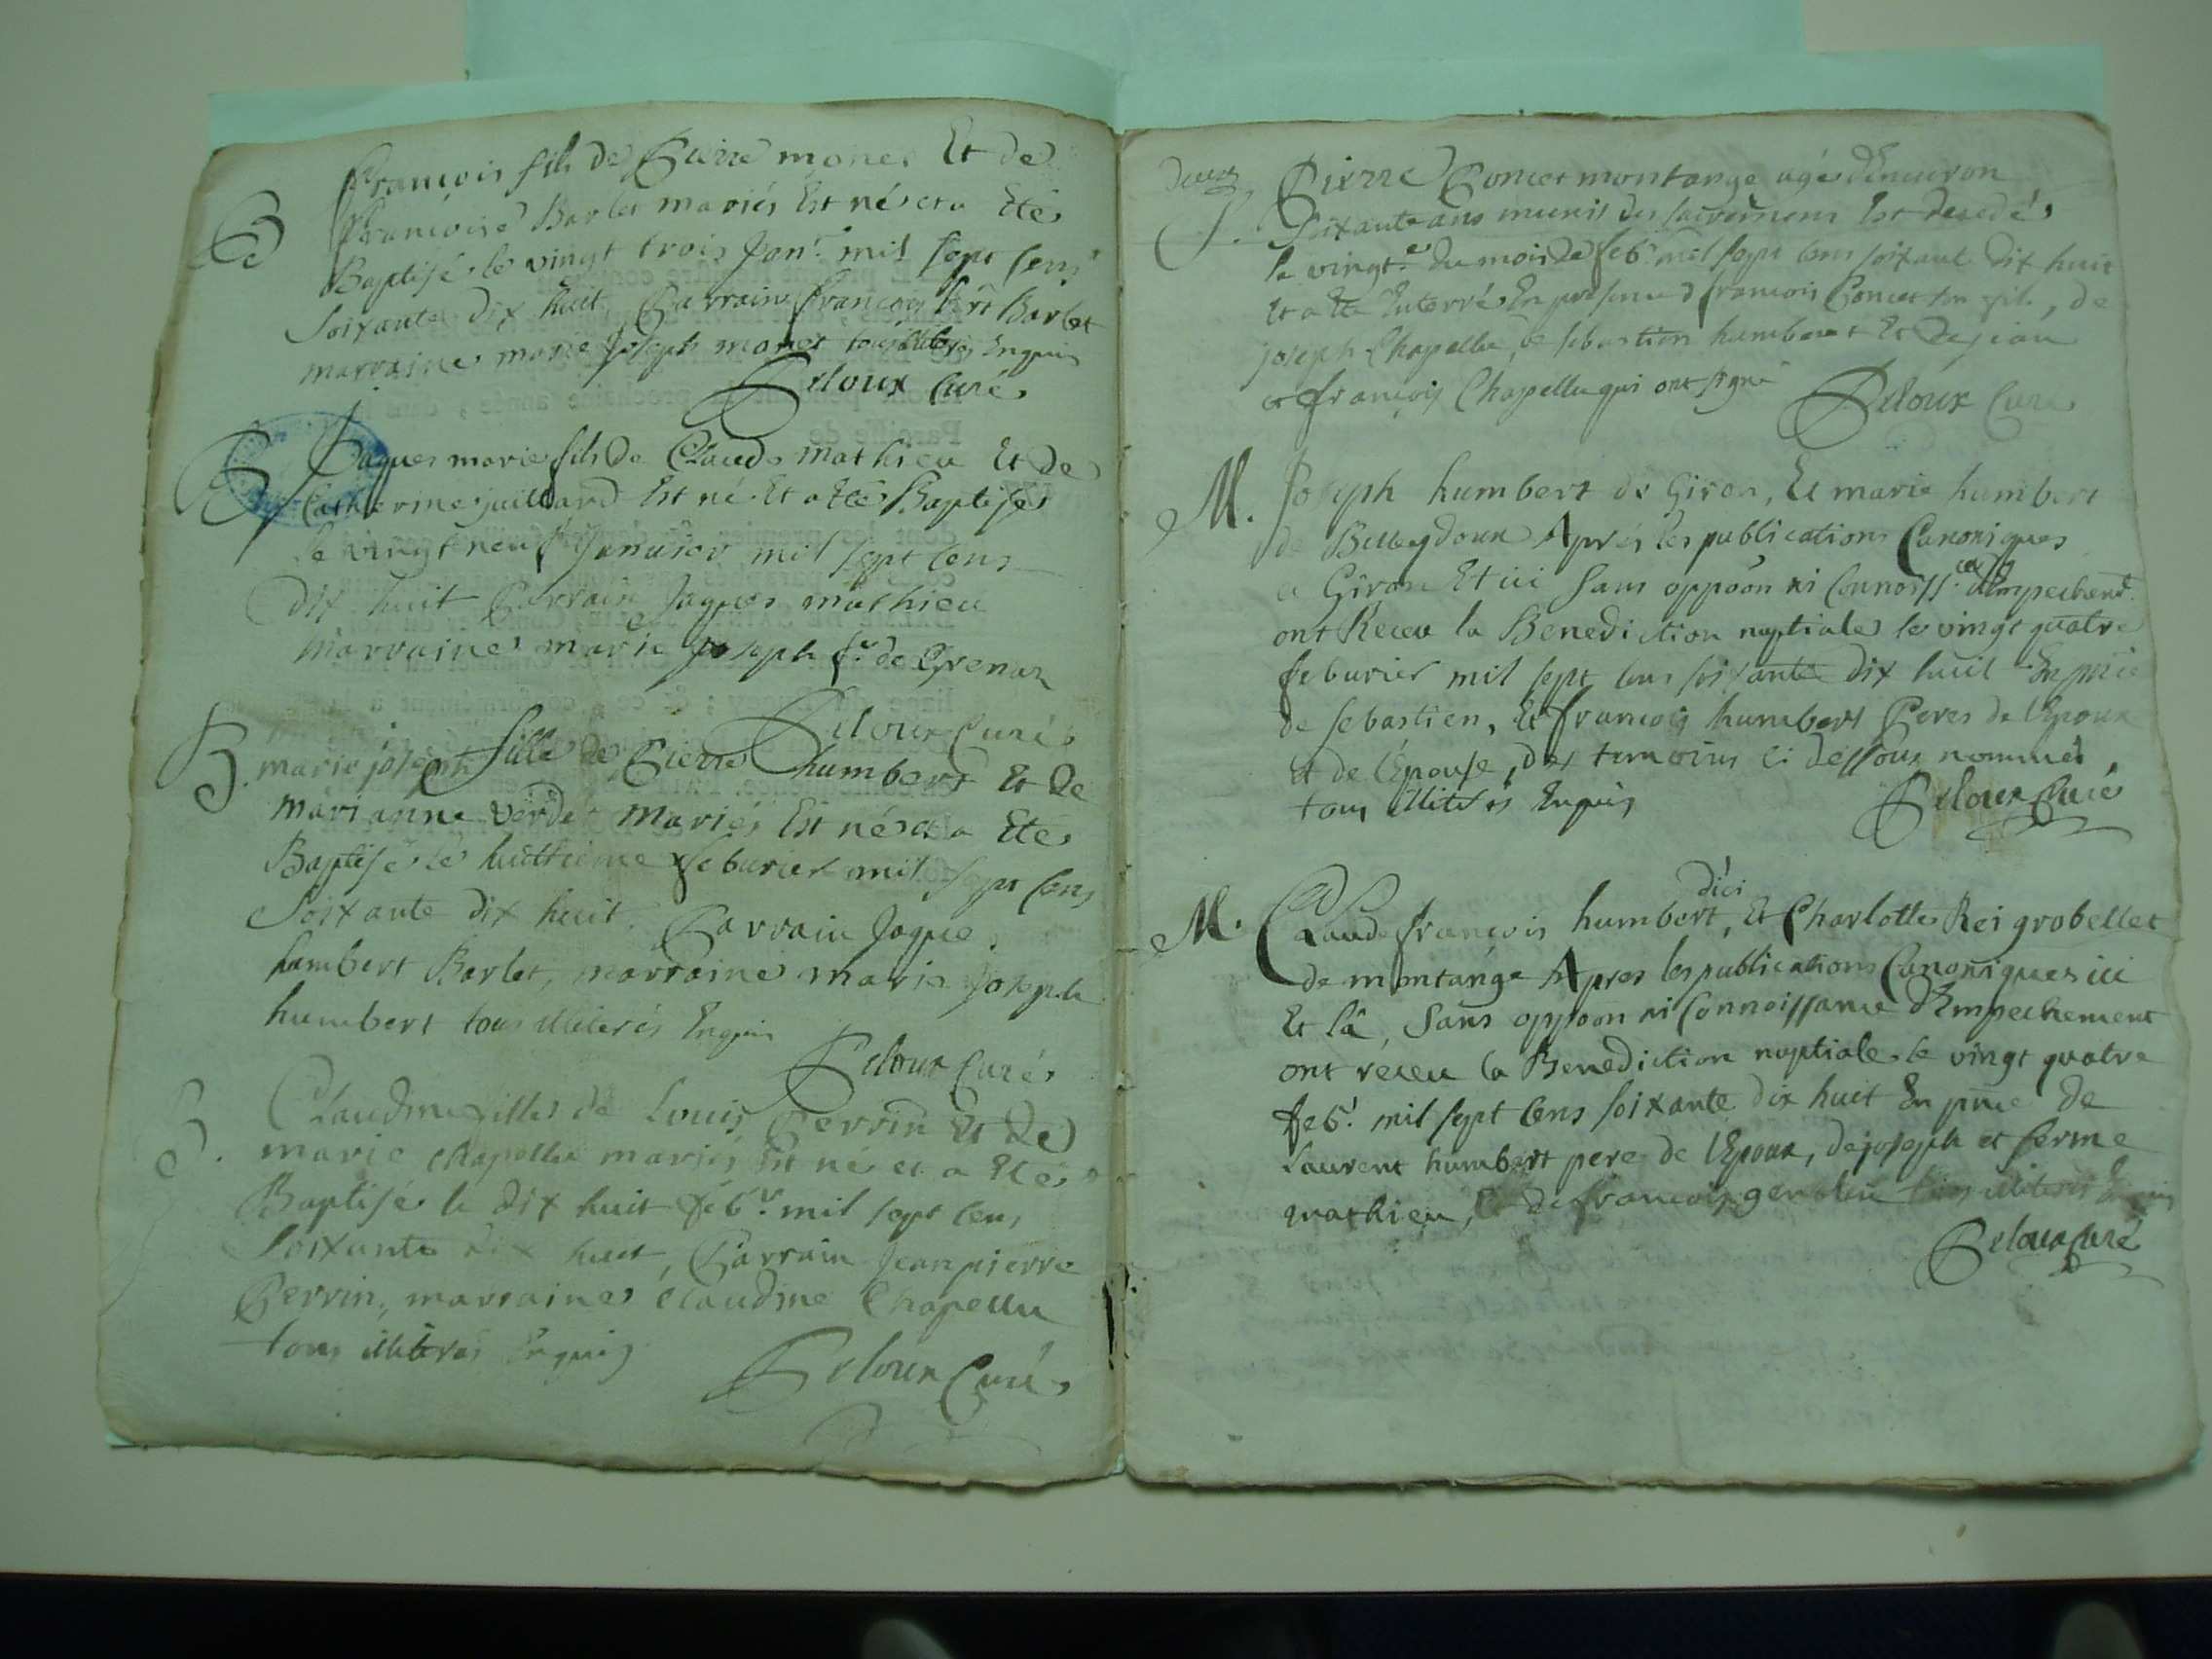 B
François fils de Pierre monet Et de
Françoise Barlet mariés Est né et a Eté
Baptisé le vingt trois Janr. mil sept cens
soixante dix huit, Parrain François Barlet
marraine marie Joseph monet tous illiterés Enquis
Deloux Curé
B
Jaques marie fils de Claude mathieu Et de
Catherine juillard Est né Et a Eté Baptisé
le vingt neuf Januier mil sept cens
dix huit Parrain Jaques mathieu
marraine marie Joseph de Grenan
Deloux Curé
B.
marie joseph fille de Pierre humbert Et de
marianne Verdet mariés Est né et a Eté
Baptisé le huittieme feburier mil sept cens
soixante dix huit. Parrain Jaque
humbert Barlet, marraine marie Joseph
humbert tous illiterés Enquis
Deloux Curé
B.
Claudine fille de Louis Perrin Et de
marie Chapellu mariés Est né et a Eté
Baptisé le dix huit feb.r mil sept cens
soixante dix huit, Parrain Jean pierre
Perrin, marraine Claudine Chapellu
tous illiterés Enquis
Deloux Curé
S.
Pierre Poncet montange agé d'Enuiron
soixante ans munit des sacremens Est decedé
le vingt.e du mois de feb.r mil sept cens soixante dix huit
Et a Eté Enterré En presence d françois Poncet son fils, de
joseph Chapellu, de sebastien humbert Et de jean
françois Chapellu qui ont signé
Deloux Curé
M.
Joseph humbert de Giron, Et marie humbert
de Bellegdoux Aprés les publications Canoniques
a Giron Et ici sans oppoon ni Connoiss.ce d'Empechemt.
ont Receu la Benediction nuptiale le vingt quatre
feburier mil sept cens soixante dix huit En pnce
de sebastien, Et françois humbert Peres de l'Epoux
et de l'Epouse, des temoins ci dessous nommés
tous illiterés Enquis
Deloux Curé
M.
d'ici
Claude françois humbert, Et Charlotte Rei grobellet
de montange Apres les publications Canoniques ici
Et là, sans oppoon ni Connoissance d'Empechement
ont receu la Benediction nuptiale le vingt quatre
feb.r mil sept cens soixante dix huit En pnce de
Laurent humbert pere de l'Epoux, de joseph et ferme
mathieu, Et de françois gendieu tous illiterés Enquis
Deloux Curé